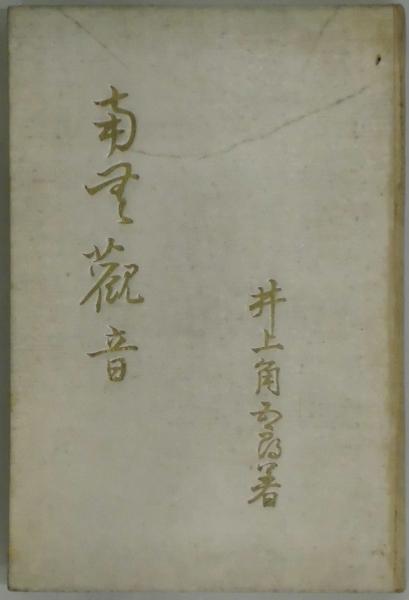 南無觀音
井上角五郎著